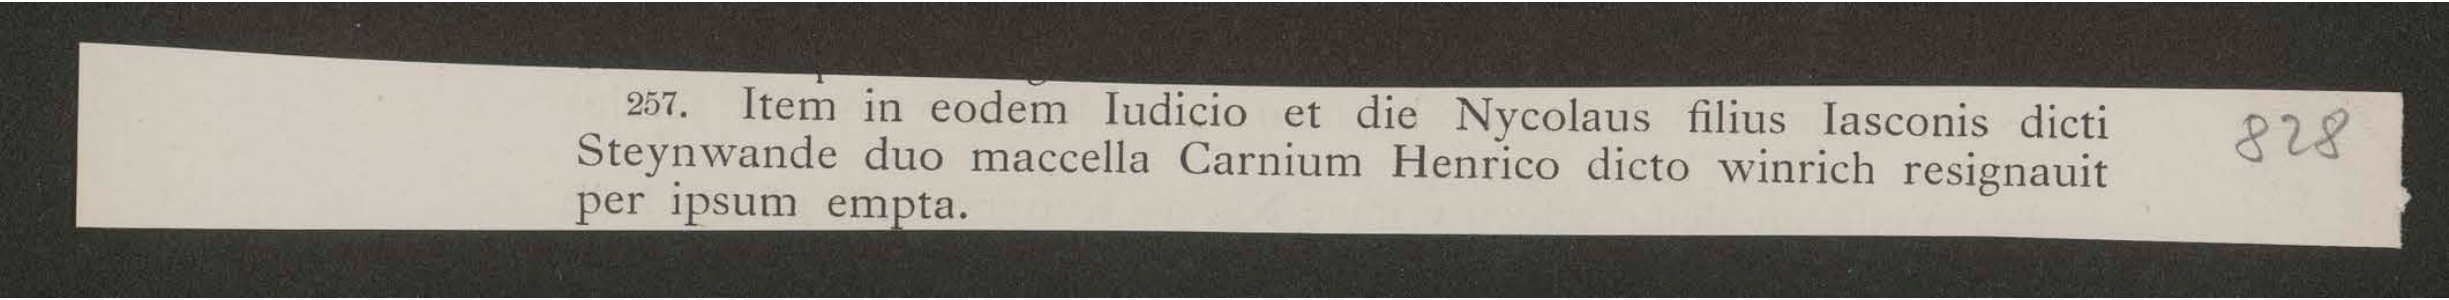 257. Item in eodem Iudicio et die Nycolaus filius Iasconis dicti
Steynwande duo maccella Carnium Henrico dicto winrich resignauit
per ipsum empta.
828